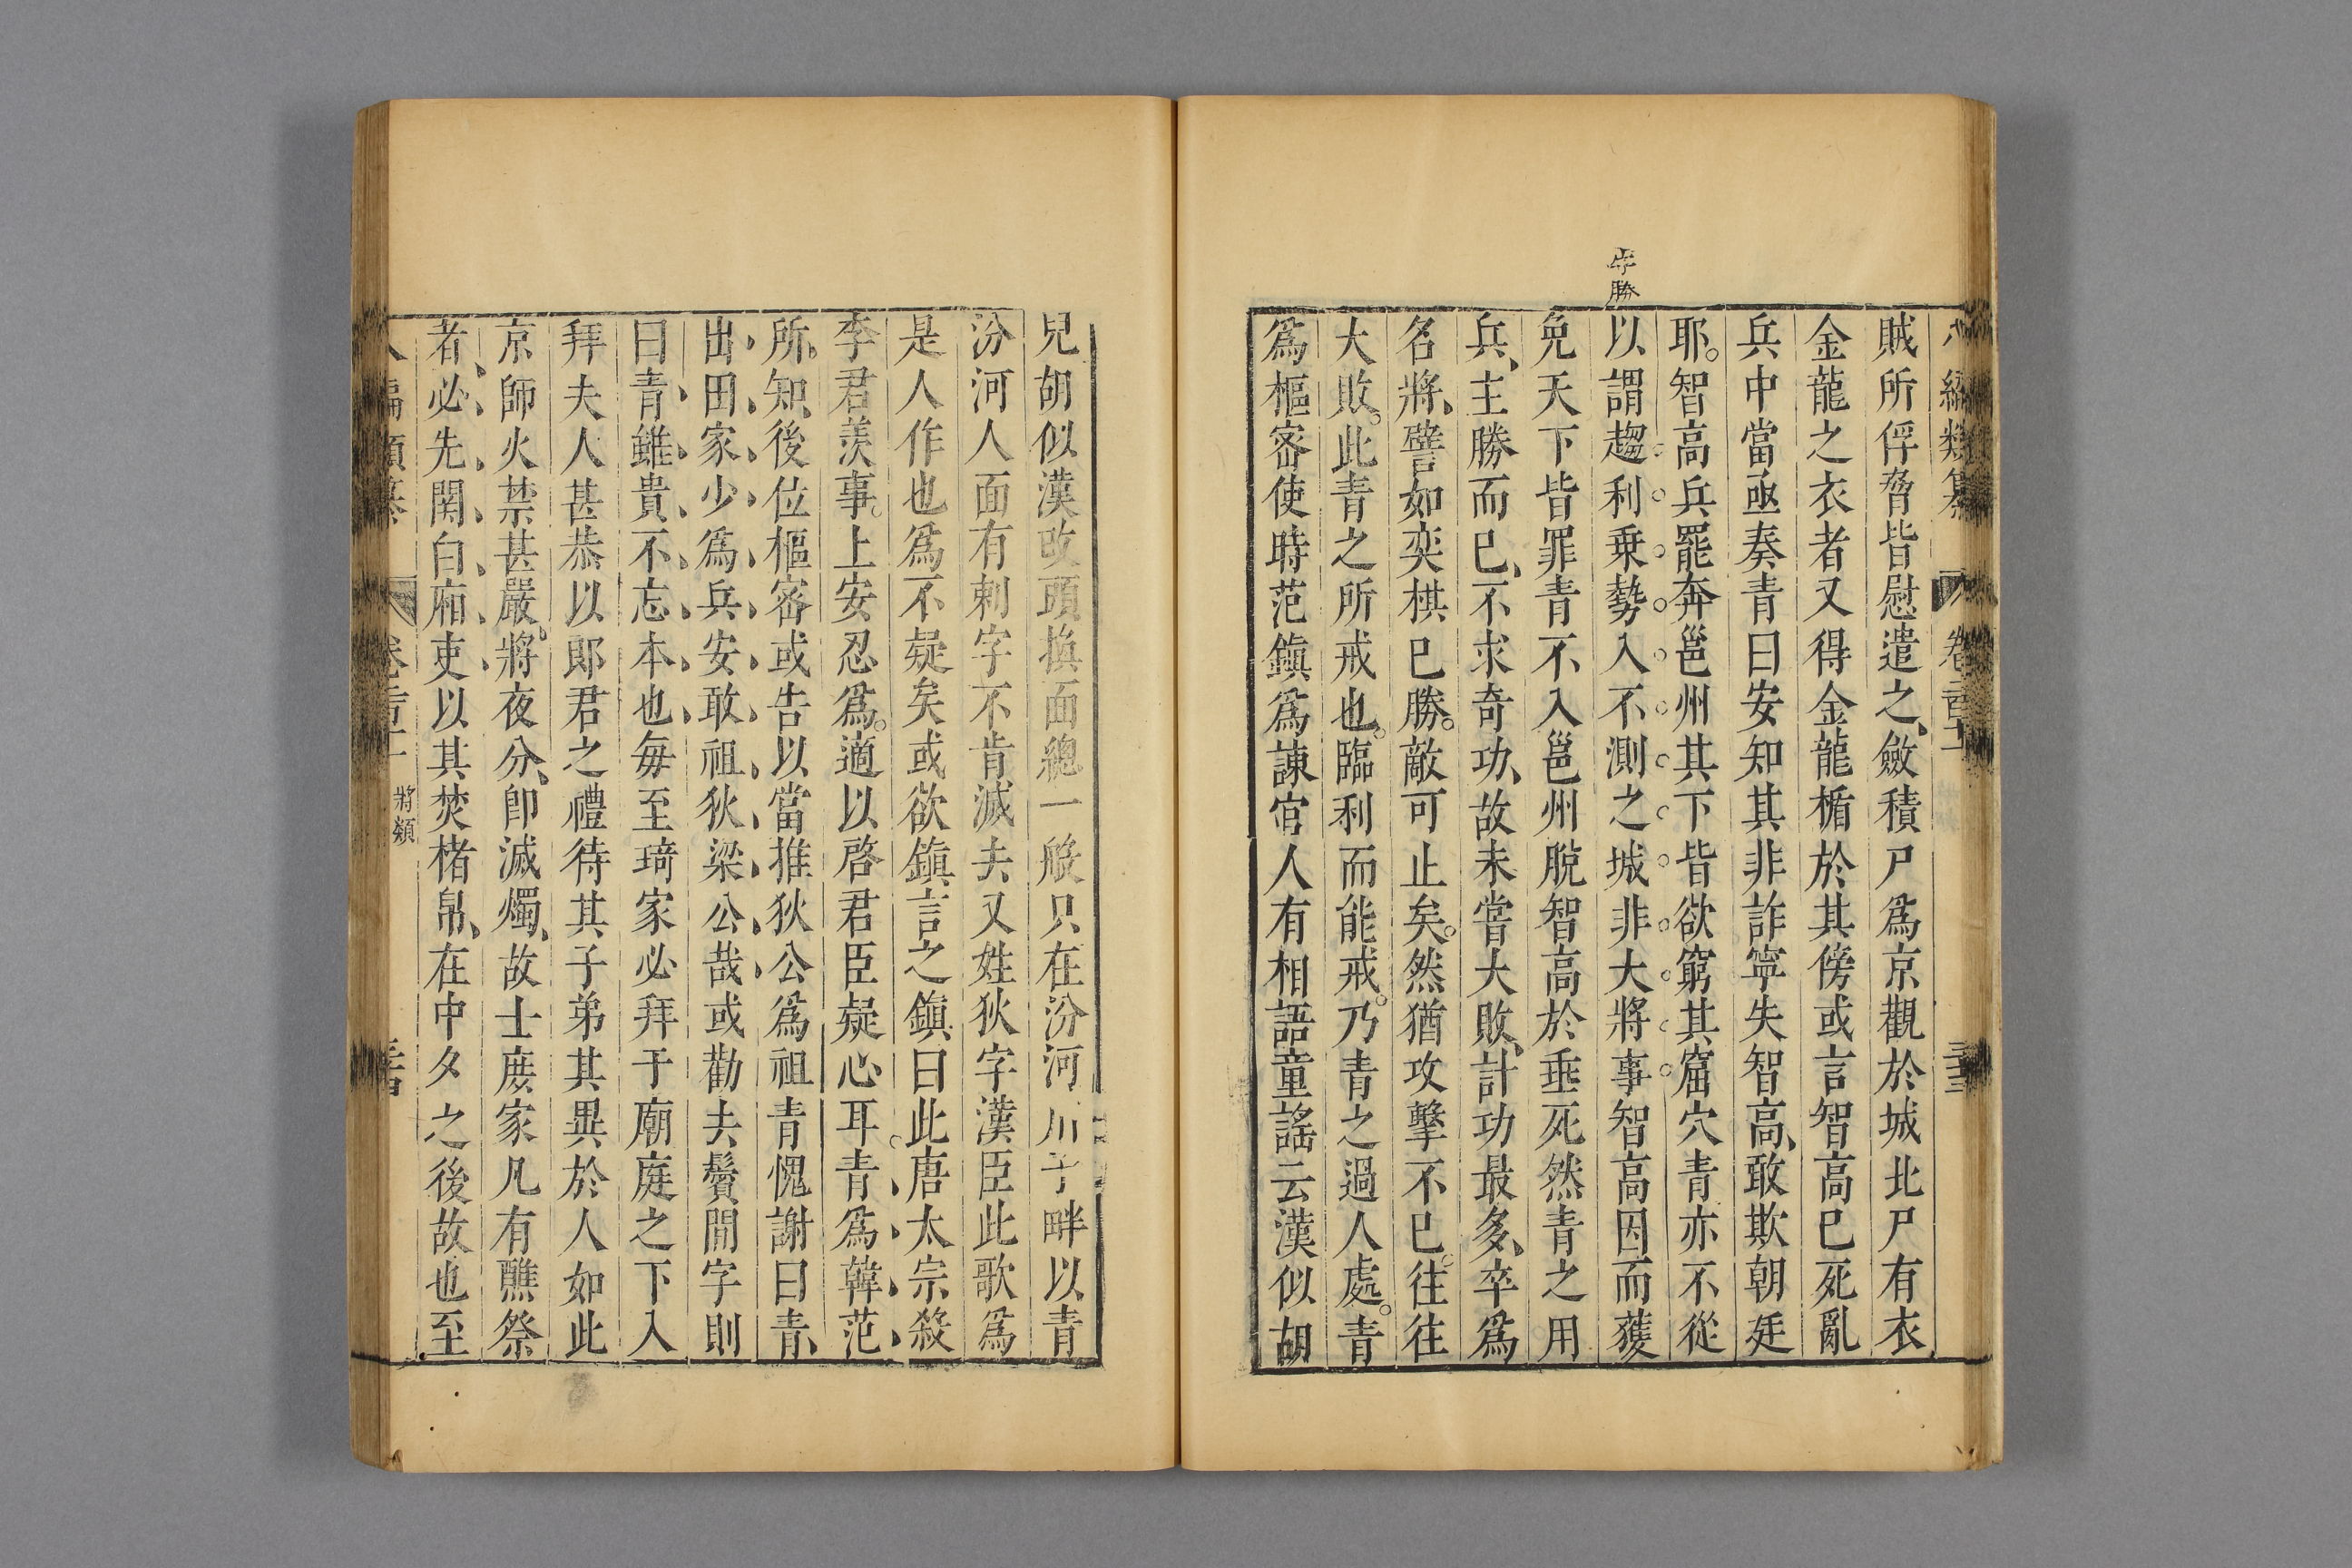 賊所俘脅皆慰遣之斂積尸爲京觀於城北尸有衣
金龍之衣者又得金龍楯於其傍或言智高已死亂
兵中當亟奏青曰安知其非詐寧失智高敢欺朝廷
耶智高兵罷奔邕州其下皆欲窮其窟穴青亦不從
以謂趨利乗勢入不測之城非大將事智高因而獲
免天下皆罪青不入邕州脫智高於垂死然青之用
兵主勝而已不求奇功故未嘗大敗計功最多卒爲
名將譬如奕棋已勝敵可止矣然猶攻擊不已往往
大敗此青之所戒也臨利而能戒乃青之過人處青
爲樞宻使時范鎮爲諫官人有相語童謠云漢似胡
兒胡似漢改頭換面總一般只在汾河川子畔以青
汾河人面有刺字不肯滅去又姓狄字漢臣此歌爲
是人作也爲不疑矣或欲鎮言之鎮曰此唐太宗殺
李君羨事上安忍爲適以啓君臣疑心耳青爲韓范
所知後位樞密或告以當推狄公爲祖青愧謝曰青
出田家少爲兵安敢祖狄梁公哉或勸去鬢間字則
曰青雖貴不忘本也每至琦家必拜于廟庭之下入
拜夫人甚恭以郎君之禮待其子弟其異於人如此
京師火禁甚嚴將夜分卽滅燭故士庶家凡有醮祭
者必先関白廂吏以其焚楮帛在中夕之後故也至
將類